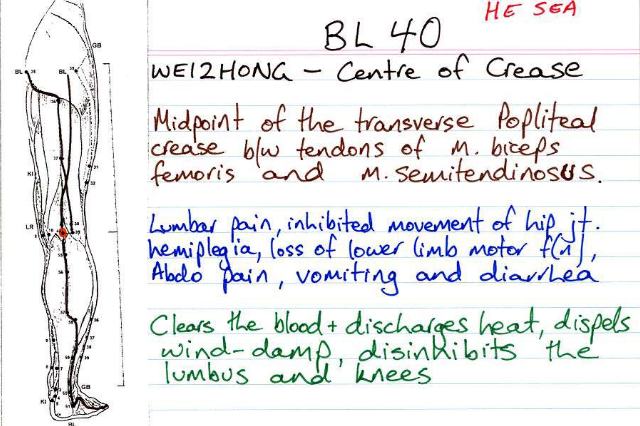 HE SEA
BL 40
WEIZHONG – Centre of Crease
Midpoint of the transverse Popliteal
crease b/w tendons of m. biceps
femoris and m. semitendinosus.
Lumbar pain, inhibited movement of hip jt.
hemiplegia, loss of lower limb motor f(n),
Abdo pain, vomiting and diarrhea
Clears the blood + discharges heat, dispels
wind-damp, disinhibits the
lumbus and knees
GB
BL
BL
KI
LR
GB
KI
BL